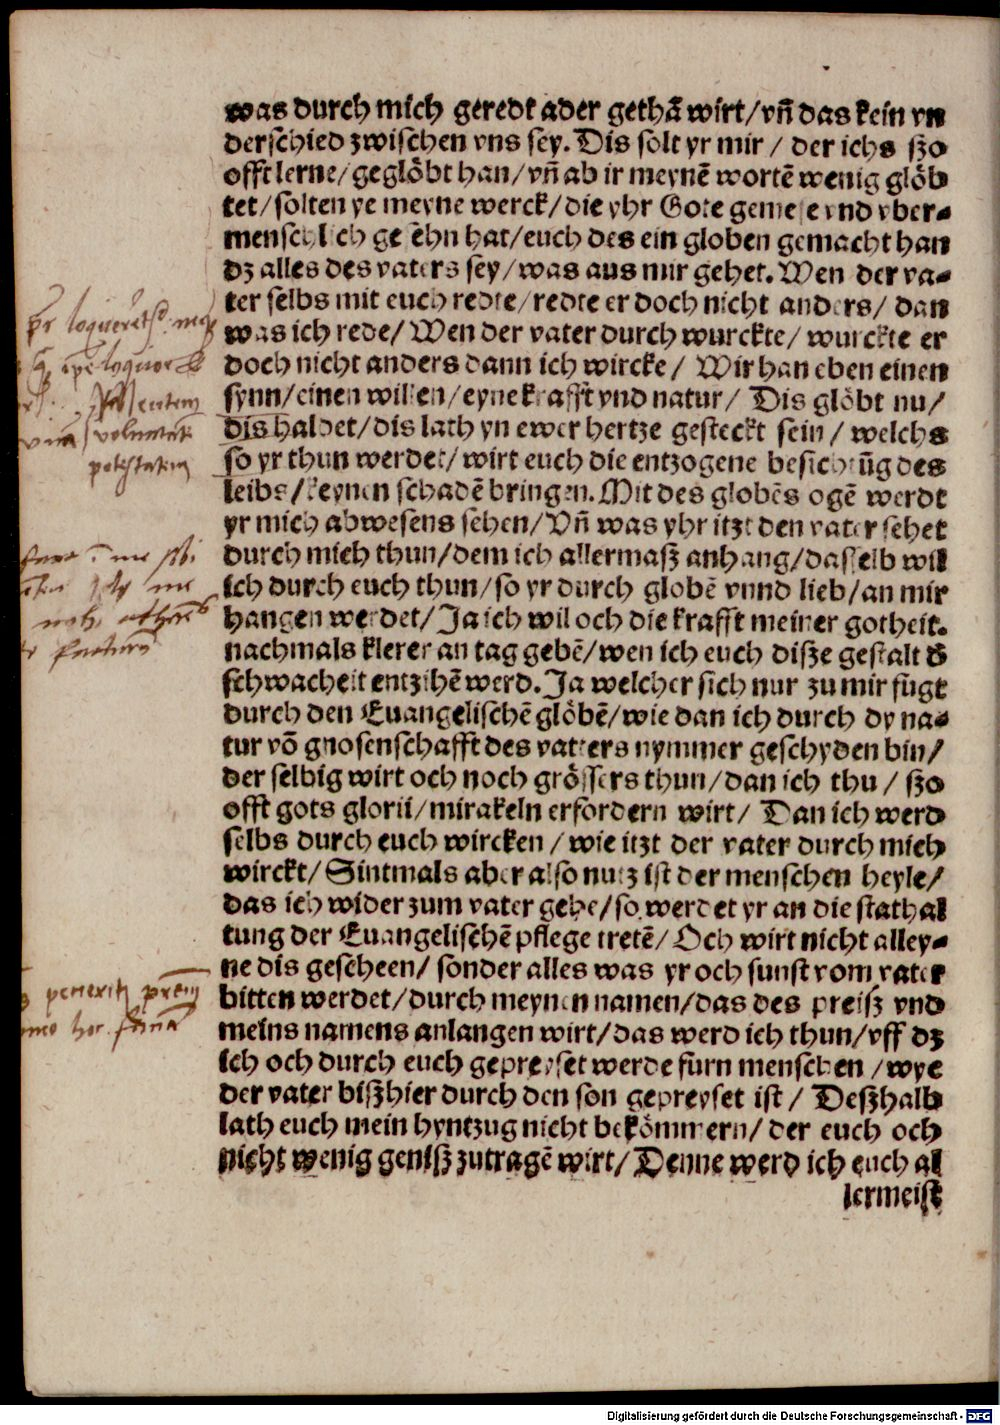 was durch mich geredt ader gethā wirt/vñ das kein vn
derschied zwischen vns sey. Dis solt yr mir / der ichs ſzo
offt lerne/geglöbt han/vñ ab ir meynē wortē wenig glöb
tet/solten ye meyne werck/die yhr Gote gemese vnd vber-
menschlich geſchēhn hat/euch des ein globen gemacht han
dz alles des vaters sey/was aus mir gehet. Wen der va-
ter selbs mit euch redte/redte er doch nicht anders/ dan
was ich rede/ Wen der vater durch wurckte/ wurckte er
doch nicht anders dann ich wircke/ Wir han eben einen
synn/einen willen/eyne krafft vnd natur/ Dis glöbt nu/
dis haldet/dis lath yn ewer hertze gesteckt sein / welchs
so yr thun werdet/wirt euch die entzogene besichtūg des
leibs/keynen schadē bringen. Mit des globēs ogē werdt
yr mich abwesens sehen/Vñ was yhr itzt den vater sehet
durch mich thun/dem ich allermaſz anhang/dasselb wil
ich durch euch thun/so yr durch globē vnnd lieb/an mir
hangen werdet/Ja ich wil och die krafft meiner gotheit.
nachmals klerer an tag gebē/wen ich euch diſze gestalt d̄
schwacheit entzihē werd. Ja welcher sich nur zu mir fügt
durch den Euangelischē glöbē/wie dan ich durch dy na-
tur vō gnosenschafft des vatters nymmer geschyden bin/
der selbig wirt och noch grössers thun/dan ich thu / ſzo
offt gots glorii/mirakeln erfordern wirt/ Dan ich werd
selbs durch euch wircken / wie itzt der vater durch mich
wirckt/Sintmals aber also nutz ist der menschen heyle/
das ich wider zum vater gehe/so werdet yr an die stathal
tung der Euangelischē pflege tretē/Och wirt nicht alley-
ne dis gescheen/ sonder alles was yr och sunst vom vater
bitten werdet/durch meynen namen/das des preiſz vnd
meins namens anlangen wirt/das werd ich thun/vff dz
ich och durch euch gepreyset werde fürn menschen /wye
der vater biſzhier durch den son gepreyset ist / Deſzhalb
lath euch mein hyntzug nicht bekömmern/ der euch och
nicht wenig geniſz zutragē wirt/Denne werd ich euch al
lermeist
voluntatē
potestatem
Digitalisierung gefördert durch die Deutsche Forschungsgemeinschaft - DFG